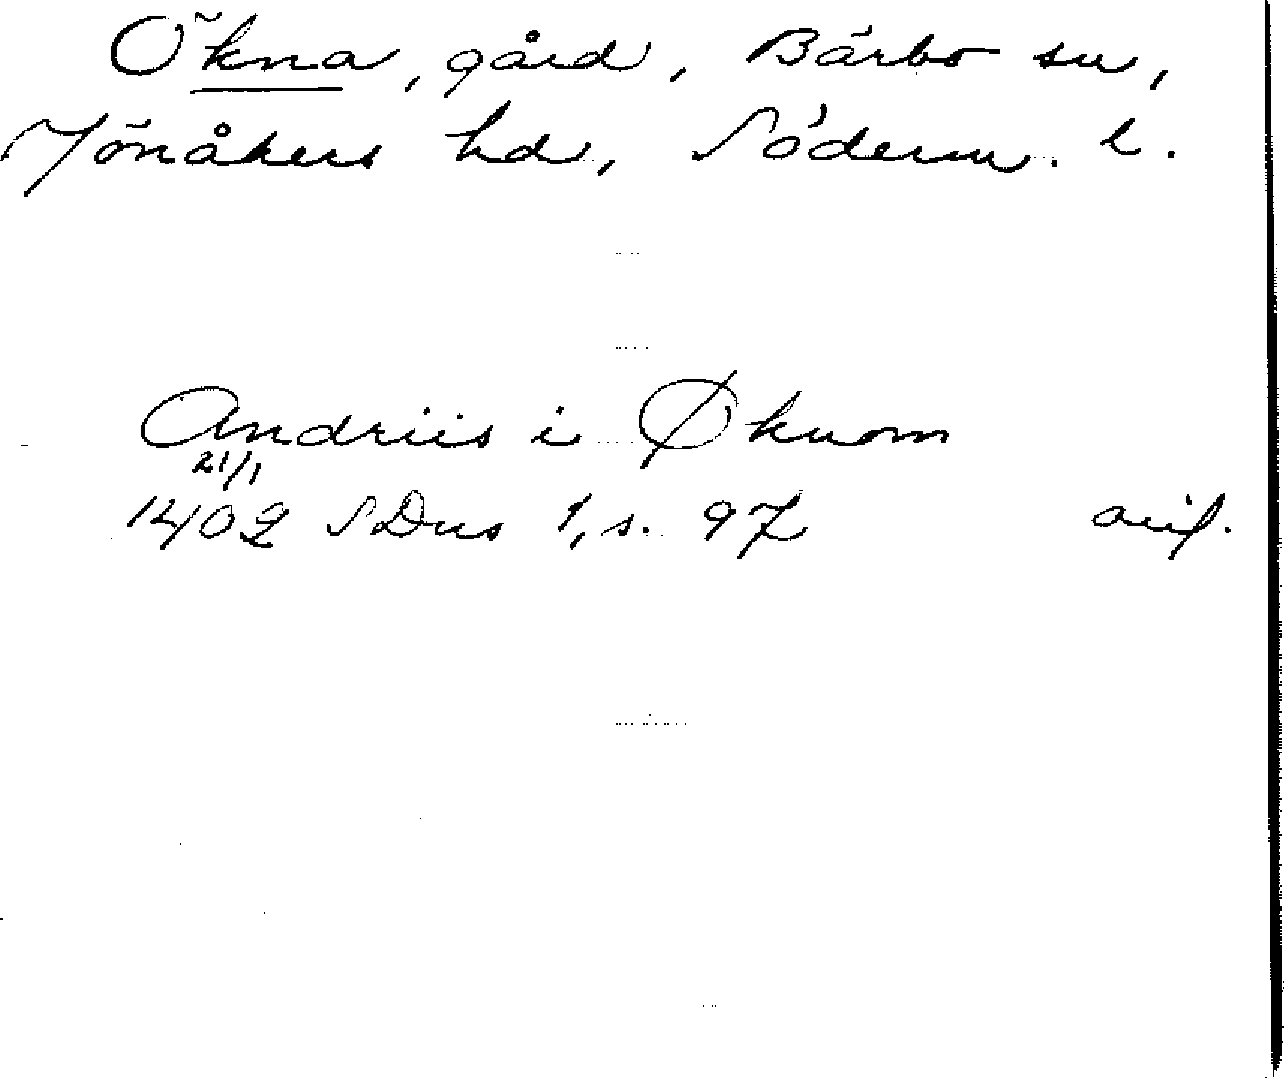 Ökna, gård, Bärbo sn,
Jönåkers hd, Söderm. l.
Andriis i Øknom
21/1
1402 SDns 1, s. 97 avs.